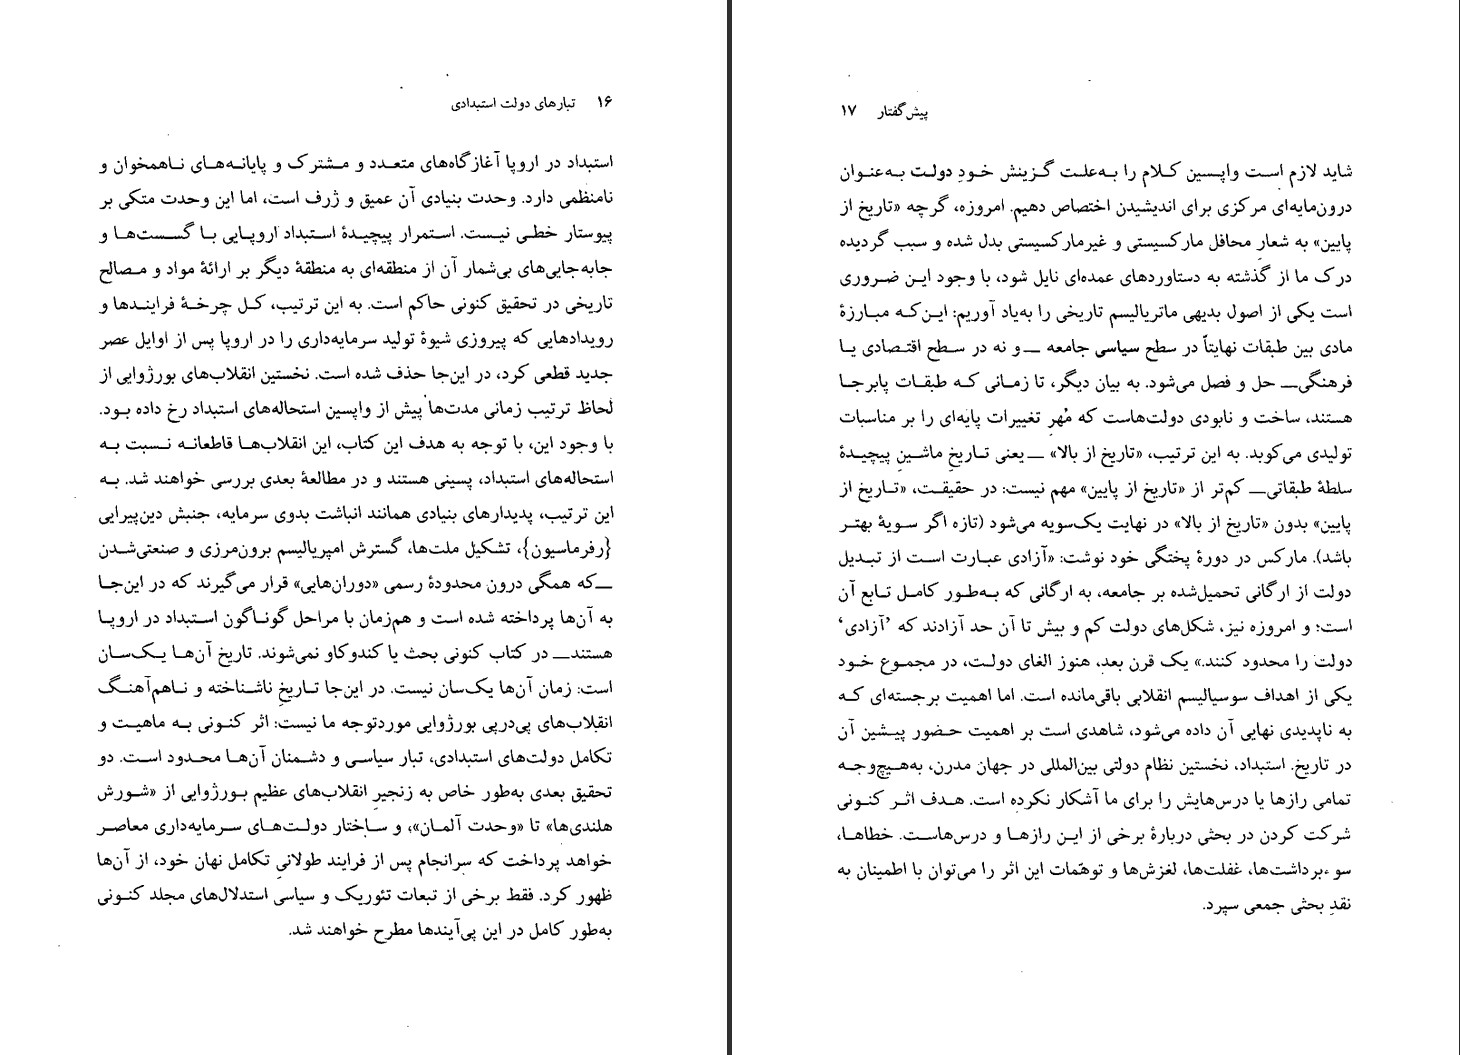 ۱۶ تبارهای دولت استبدادی
استبداد در اروپا آغازگاه‌های متعدد و مشترک و پایانه‌های ناهمخوان و
نامنظمی دارد. وحدت بنیادی آن عمیق و ژرف است، اما این وحدت متکی بر
پیوستار خطی نیست. استمرار پیچیدهٔ استبداد اروپایی با گسست‌ها و
جابه‌جایی‌های بی‌شمار آن از منطقه‌ای به منطقهٔ دیگر بر ارائهٔ مواد و مصالح
تاریخی در تحقیق کنونی حاکم است. به این ترتیب، کل چرخهٔ فرایندها و
رویدادهایی که پیروزی شیوهٔ تولید سرمایه‌داری را در اروپا پس از اوایل عصر
جدید قطعی کرد، در این‌جا حذف شده است. نخستین انقلاب‌های بورژوایی از
لحاظ ترتیب زمانی مدت‌ها پیش از واپسین استحاله‌های استبداد رخ داده بود.
با وجود این، با توجه به هدف این کتاب، این انقلاب‌ها قاطعانه نسبت به
استحاله‌های استبداد، پسینی هستند و در مطالعهٔ بعدی بررسی خواهند شد. به
این ترتیب، پدیدارهای بنیادی همانند انباشت بدوی سرمایه، جنبش دین‌پیرایی
{رفرماسیون}، تشکیل ملت‌ها، گسترش امپریالیسم برون‌مرزی و صنعتی‌شدن
ــ‌که همگی درون محدودهٔ رسمی «دوران‌هایی» قرار می‌گیرند که در این‌جا
به آن‌ها پرداخته شده است و هم‌زمان با مراحل گوناگون استبداد در اروپا
هستند‌ــ در کتاب کنونی بحث یا کندوکاو نمی‌شوند. تاریخ آن‌ها یک‌سان
است: زمان آن‌ها یک‌سان نیست. در این‌جا تاریخِ ناشناخته و ناهم‌آهنگ
انقلاب‌های پی‌درپی بورژوایی موردتوجه ما نیست: اثر کنونی به ماهیت و
تکامل دولت‌های استبدادی، تبار سیاسی و دشمنان آن‌ها محدود است. دو
تحقیق بعدی به‌طور خاص به زنجیرِ انقلاب‌های عظیم بورژوایی از «شورش
هلندی‌ها» تا «وحدت آلمان»؛ و ساختار دولت‌های سرمایه‌داری معاصر
خواهد پرداخت که سرانجام پس از فرایند طولانیِ تکامل نهان خود، از آن‌ها
ظهور کرد. فقط برخی از تبعات تئوریک و سیاسی استدلال‌های مجلد کنونی
به‌طور کامل در این پی‌آیندها مطرح خواهند شد.
پیش‌گفتار ۱۷
شاید لازم است واپسین کلام را به‌علت گزینش خودِ دولت به‌عنوان
درون‌مایه‌ای مرکزی برای اندیشیدن اختصاص دهیم. امروزه، گرچه «تاریخ از
پایین» به شعار محافل مارکسیستی و غیرمارکسیستی بدل شده و سبب گردیده
درک ما از گذشته به دستاوردهای عمده‌ای نایل شود، با وجود این ضروری
است یکی از اصول بدیهی ماتریالیسم تاریخی را به‌یاد آوریم: این‌که مبارزهٔ
مادی بین طبقات نهایتاً در سطح سیاسی جامعه ــ‌و نه در سطح اقتصادی یا
فرهنگی‌ــ حل و فصل می‌شود. به بیان دیگر، تا زمانی که طبقات پابرجا
هستند، ساخت و نابودی دولت‌هاست که مُهرِ تغییرات پایه‌ای را بر مناسبات
تولیدی می‌کوبد. به این ترتیب، «تاریخ از بالا» ــ‌یعنی تاریخِ ماشینِ پیچیدهٔ
سلطهٔ طبقاتی‌ــ کم‌تر از «تاریخ از پایین» مهم نیست: در حقیقت، «تاریخ از
پایین» بدون «تاریخ از بالا» در نهایت یک‌سویه می‌شود (تازه اگر سویهٔ بهتر
باشد). مارکس در دورهٔ پختگی خود نوشت: «آزادی عبارت است از تبدیل
دولت از ارگانی تحمیل‌شده بر جامعه، به ارگانی که به‌طور کامل تابع آن
است؛ و امروزه نیز، شکل‌های دولت کم و بیش تا آن حد آزادند که ’آزادی‘
دولت را محدود کنند.» یک قرن بعد، هنوز الغای دولت، در مجموع خود
یکی از اهداف سوسیالیسم انقلابی باقی‌مانده است. اما اهمیت برجسته‌ای که
به ناپدیدی نهایی آن داده می‌شود، شاهدی است بر اهمیت حضور پیشین آن
در تاریخ. استبداد، نخستین نظام دولتی بین‌المللی در جهان مدرن، به‌هیچ‌وجه
تمامی رازها یا درس‌هایش را برای ما آشکار نکرده است. هدف اثر کنونی
شرکت کردن در بحثی دربارهٔ برخی از این رازها و درس‌هاست. خطاها،
سوءبرداشت‌ها، غفلت‌ها، لغزش‌ها و توهّمات این اثر را می‌توان با اطمینان به
نقدِ بحثی جمعی سپرد.